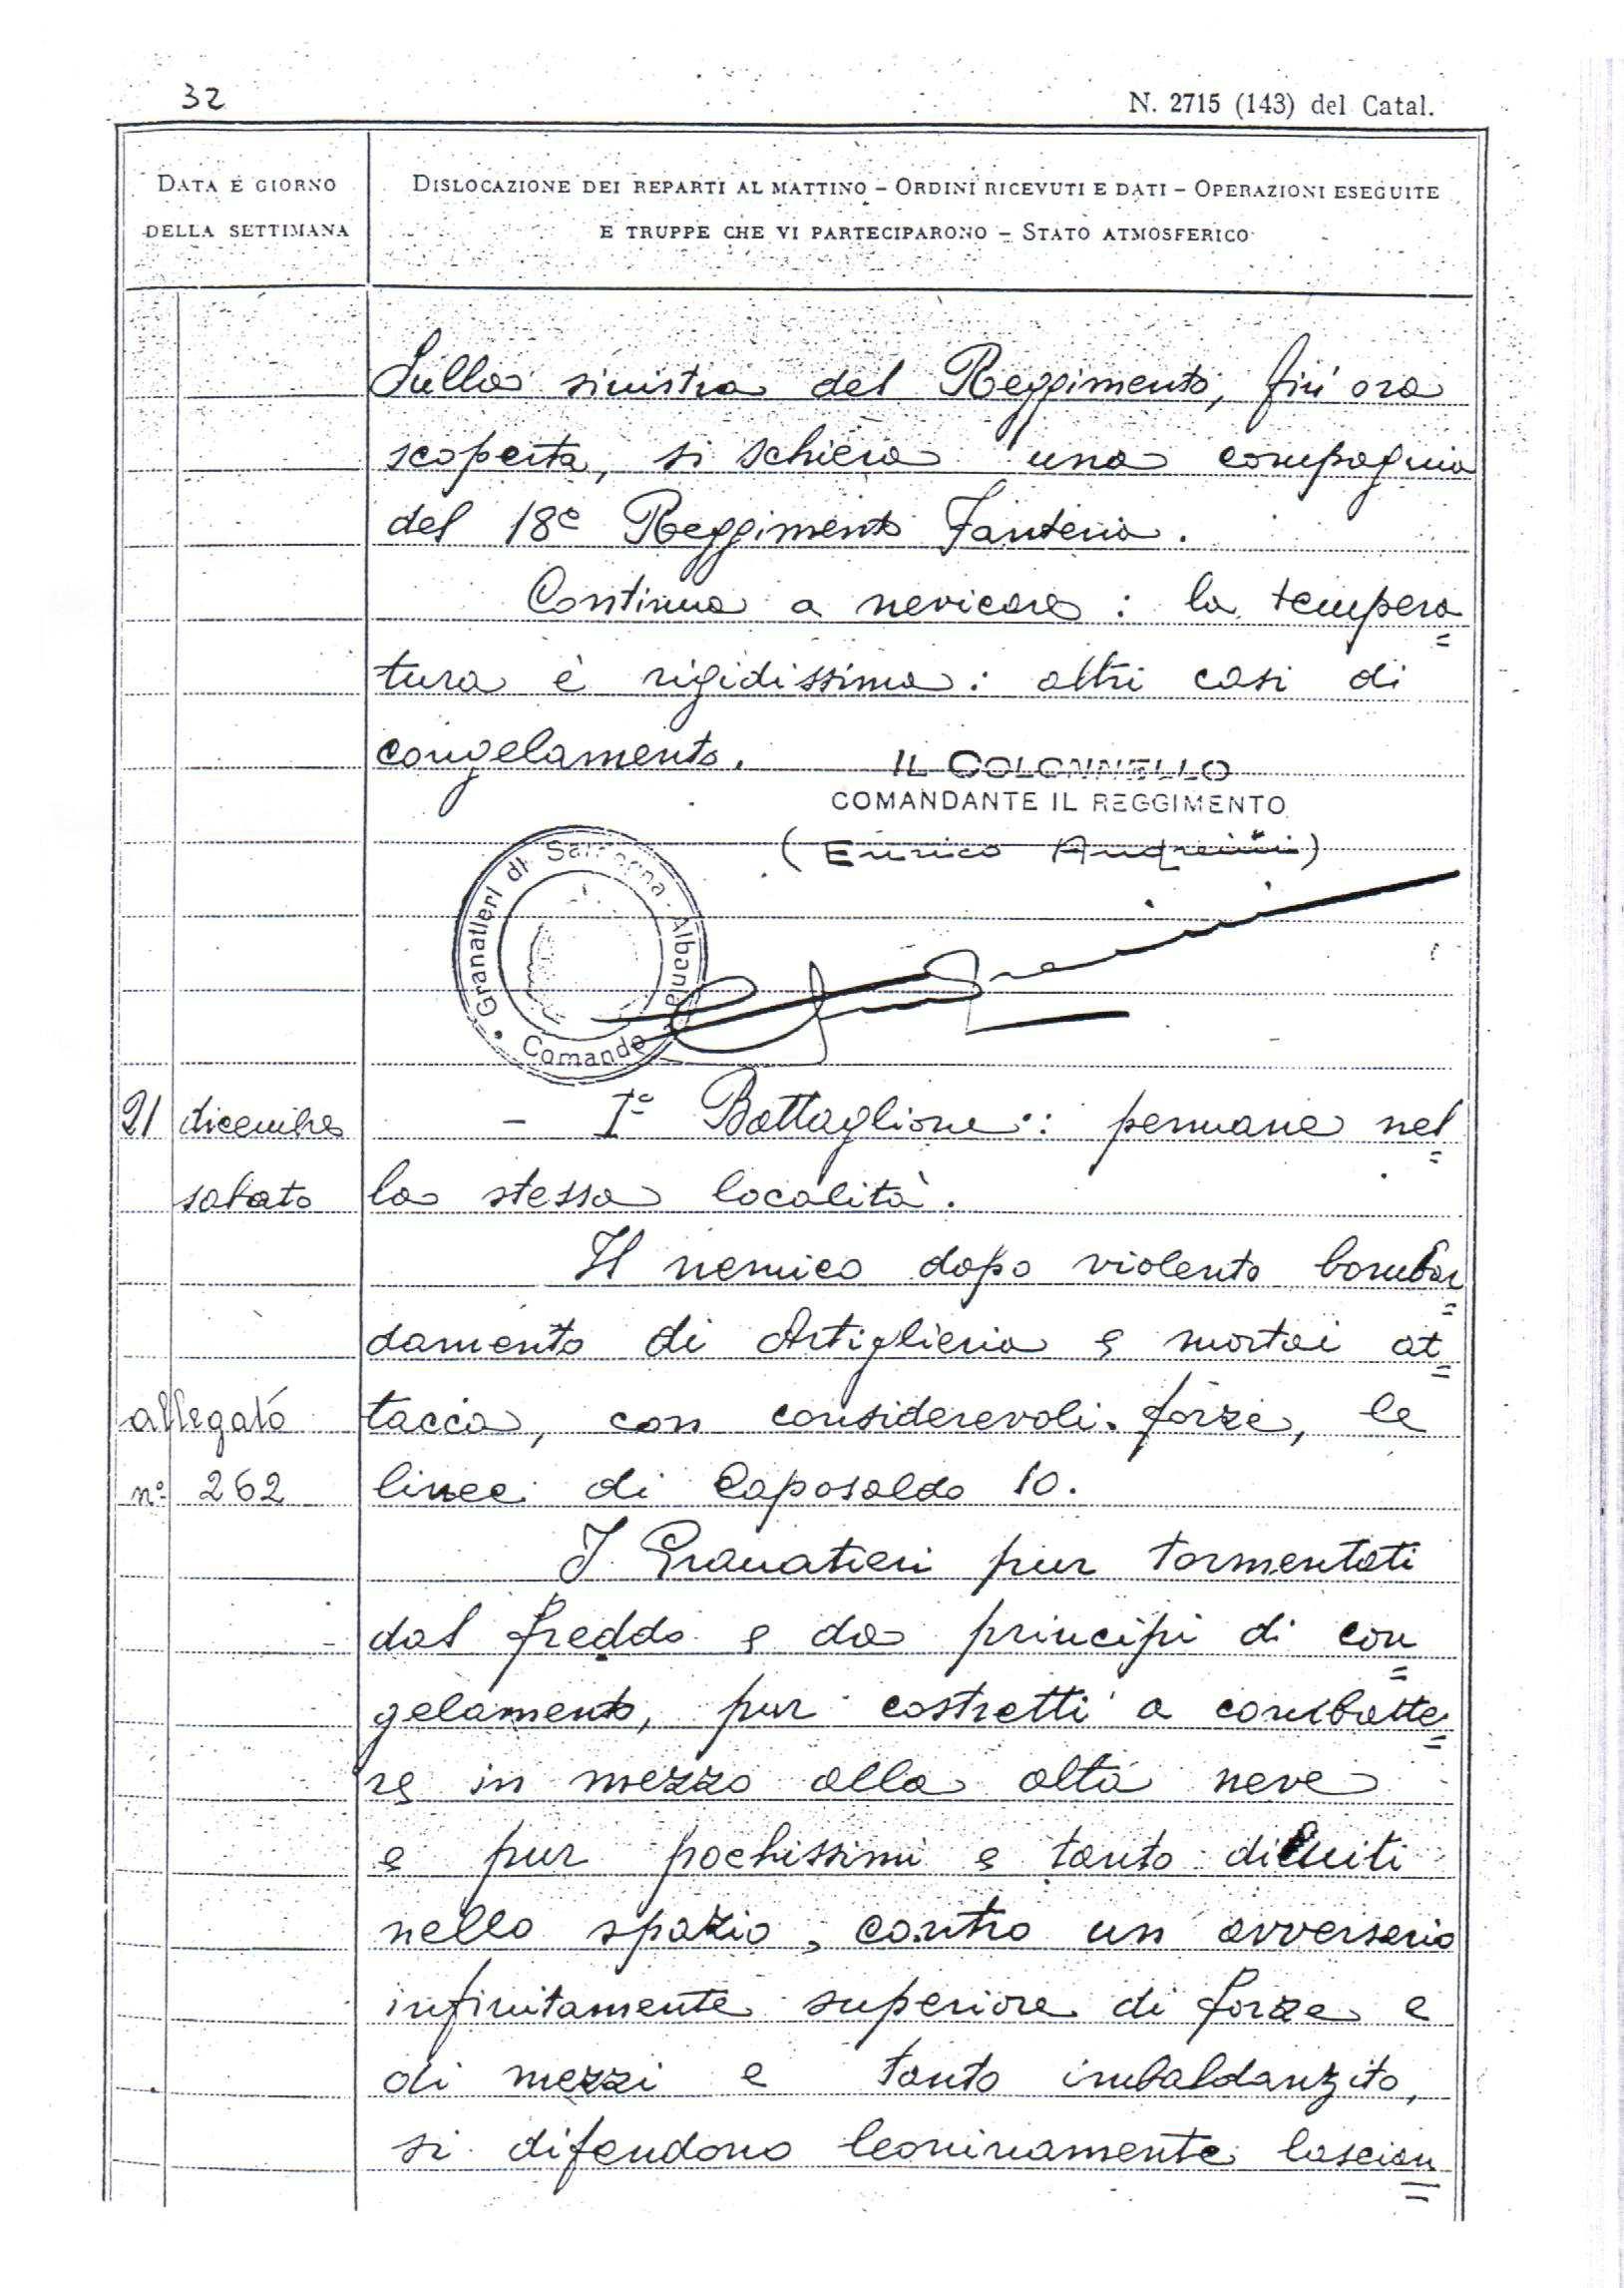 32
N. 2715 (143) del Catal.
DATA E GIORNO
DELLA SETTIMANA
DISLOCAZIONE DEI REPARTI AL MATTINO – ORDINI RICEVUTI E DATI – OPERAZIONI ESEGUITE
E TRUPPE CHE VI PARTECIPARONO – STATO ATMOSFERICO
Sulla sinistra del Reggimento, fin' ora
scoperta, si schiera una compagnia
del 18º Reggimento Fanteria.
Continua a nevicare : la tempera=
tura è rigidissima: altri casi di
congelamento.
IL COLONNELLO
COMANDANTE IL REGGIMENTO
(Enrico Andreini)
Granatieri di Sardegna - Albania
Comando
21 dicembre
sabato
– Iº Battaglione: permane nel=
la stessa località.
Il nemico dopo violento bombar=
damento di Artiglieria e mortai at=
tacca, con considerevoli forze, le
linee di Caposaldo 10.
allegato
nº 262
I Granatieri pur tormentati
dal freddo e da principi di con=
gelamento, pur costretti a combatte=
re in mezzo alla alta neve
e pur pochissimi e tanto diluiti
nello spazio, contro un avversario
infinitamente superiore di forze e
di mezzi e tanto imbaldanzito,
si difendono leoninamente lascian=